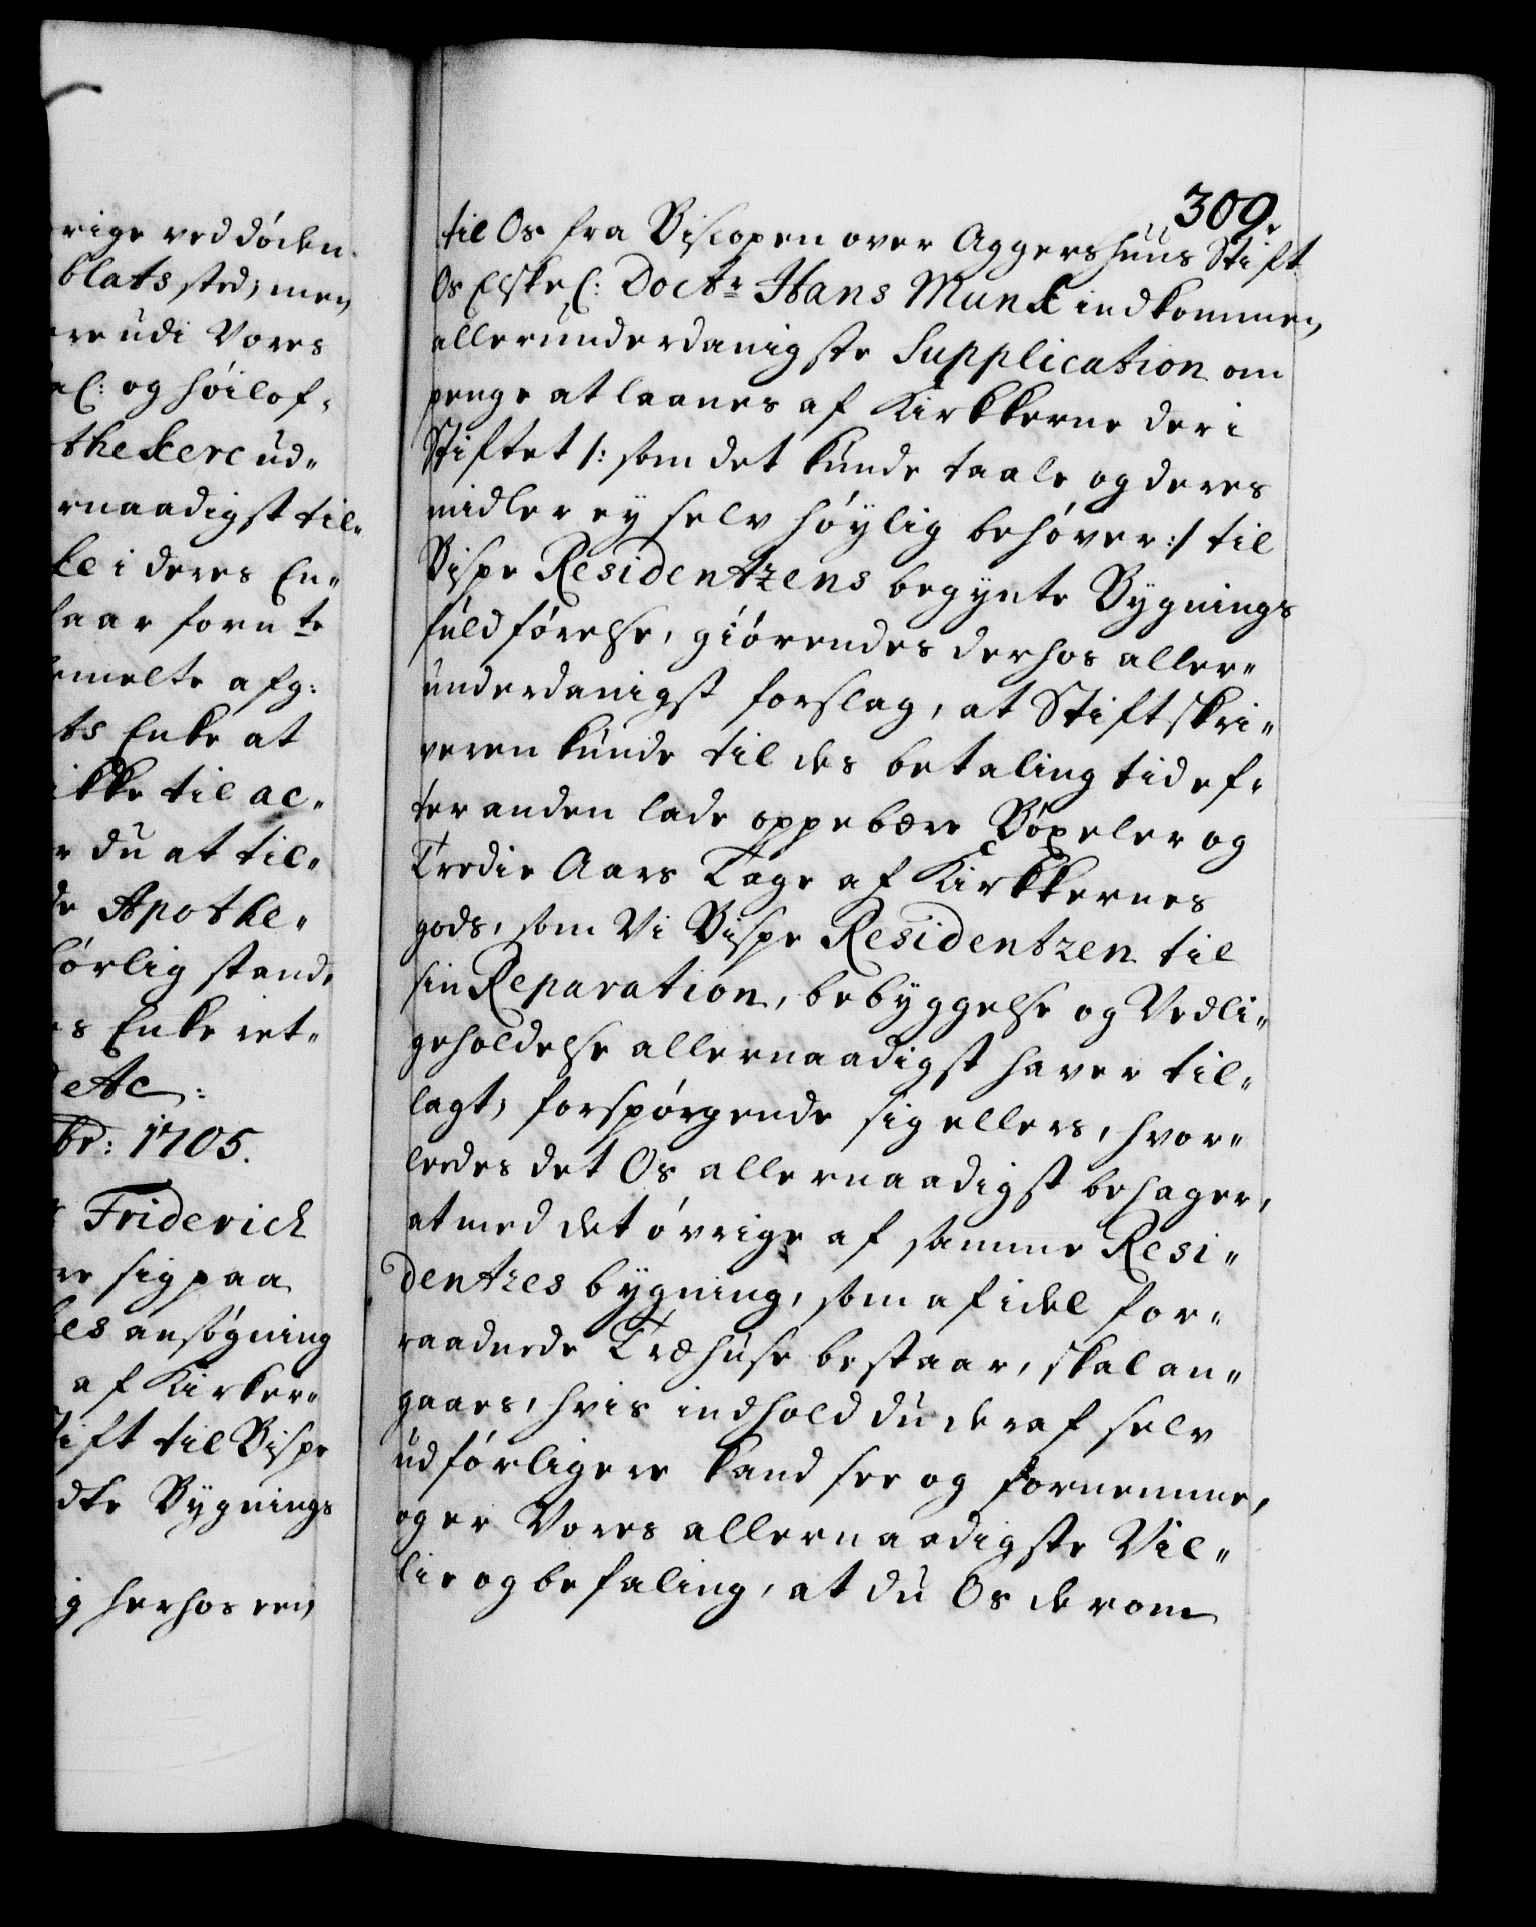 rige ved döden
blats sted; men
re udi Vores
El: og höilof-
thekere ud-
rnaadigst til-
ke i deres En-
haar foru te
emelte afg:
ts Enke at
ikke til ac-
r du at til-
de Apothe-
börlig stand,
s Enke ret-
Etc:
br: 1705.
Friderich
re sig paa
kes ansögning
af Kirker-
tift til Bispe
dte Bygnings
ig herhos een
309.
til Os fra Biscopen over Aggershuus Stift
Os Elskel: Doctr Hans Munk indkommen
allerunderdanigste Supplication om
penge at laanes af Kirkkerne der i
Stiftet /: som det kunde taale og deres
midler ey selv höylig behöver :/ til
Bispe Residentzens begynte Bygnings
fuldförelse, giörendes derhos aller-
underdanigst forslag, at Stiftskri-
veren kunde til des betaling tid ef-
ter anden lade oppebære Böxeler og
Tredie Aars Tage af Kirkkernes
gods, som Vi Bispe Residentzen til
sin Reparation, bebyggelse og Vedli-
geholdelse allernaadigst haver til-
lagt; forspörgende sig ellers, hvor-
ledes det Os allernaadigst behager,
at med det övrige af samme Resi-
dentzes bygning, som af idel for-
raadnede Træhuse bestaar, skal an-
gaaes, hvis indhold du deraf selv
udförligere kand see og fornemme,
og er Vores allernaadigste Vil-
lie og befaling, at du Os derom